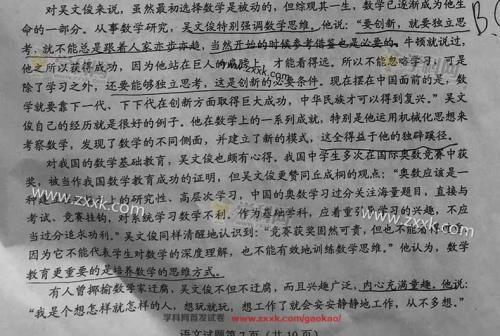 对吴文俊来说，虽然最初选择数学是被动的，但综观其一生，数学已逐渐成为他生
命的一部分。从事数学研究，吴文俊特别强调数学思维。他说：“要创新，就要独立思
考，就不能总是跟着人家亦步亦趋，当然开始的时候参考借鉴也是必要的。牛顿就说过，
他之所以获得成功，因为他站在巨人的肩膀上，才能看得远。所以不能忽略学习，可是
除了学习之外，还要能够独立思考，这是创新的必要条件。现在摆在中国面前的是，数
学就要靠下一代、下下代在创新方面取得巨大成功，中华民族才可以得到复兴。”吴文
俊自己的经历就是很好的例子。他在数学上的一系列成就，特别是他运用机械化思想来
考察数学，发现了数学的不同侧面，并建立了新的模式，这全得益于他的独辟蹊径。
对我国的数学基础教育，吴文俊也颇有心得。我国中学生多次在国际奥数竞赛中获
奖，被当作我国数学教育成功的证明，但吴文俊更赞同丘成桐的观点：“奥数应该是一
种建立在兴趣之上的研究性、高层次学习，中国的奥数学习过分关注海量题目，直接与
考试、竞赛挂钩，对系统学习数学不利。作为基础学科，应着重培养学习的兴趣，不应
当过分追求功利。”吴文俊同样清醒地认识到：“竞赛获奖固然可贵，但也不能
因为它不能代表学生对数学的深度理解，也不能有效地训练数学思维。”他认为，数学
教育更重要的是培养数学的思维方式。
有人曾揶揄数学家迂腐，吴文俊不但不迂腐，而且兴趣广泛，内心充满童趣。他说：
“我是个想怎样就怎样的人，想玩就玩，想工作了就会安安静静地工作，从不多想。”
学科网首发试卷
www.zxxk.com/gaokao/
语文试题第 7 页（共 10 页）
www.zxxk.com
zxxk.com
B.